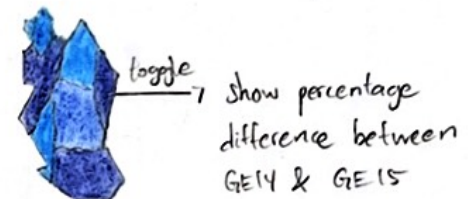 toggle
show percentage
difference between
GE14 & GE15